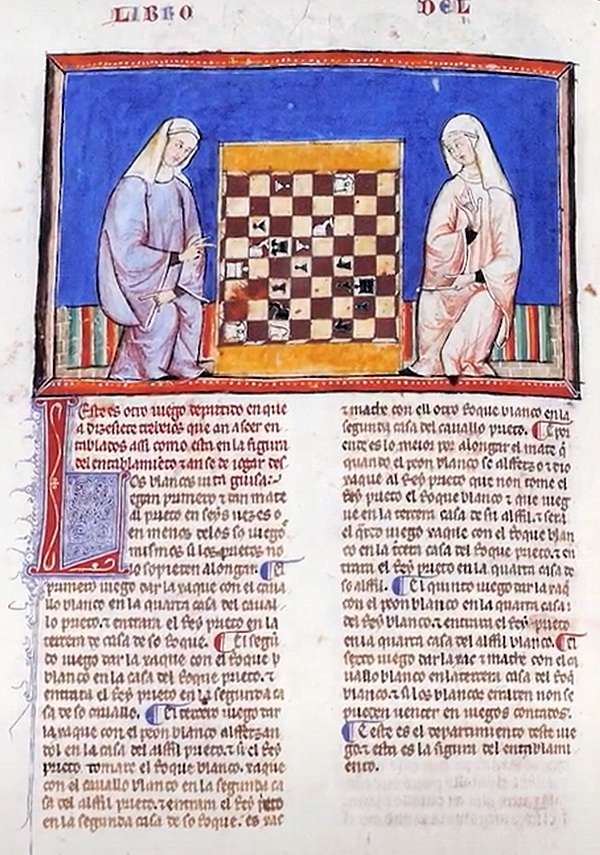 LIBRO DEL
Este es otro iuego departido en que
a dizesiete trebeios que an a seer en
tablados assi como esta en la figura
del entablamiẽto τ an se de iogar des
ta guisa.
Los blancos
iegan primero τ dan mate
al prieto en seys uezes o
en menos delos so iuego
mismos si los prietos no
lo sopieren alongar. El
primero iuego dar la xaque con el caua
llo blanco en la quarta casa del caual
lo prieto. τ entrara el Rey prieto en la
tercera casa de so Roque. El segũ
do iuego dar la xaque con el Roque b
blanco en la casa del Roque prieto. τ
entrara el Rey prieto en la segunda ca
sa de so cauallo. El tercero iuego dar
la xaque con el peon blanco alfferzan
dol en la casa del alffil prieto. τ si el Rey
prieto tomare el Roque blanco. xaque
con el cauallo blanco en la segunda ca
sa del alffil prieto. τ entrara el Rey prieto
en la segunda casa de so Roque.
τ mathe con ell otro Roque blanco en la
segunda casa del cauallo prieto. τ por
ende es lo meior por alongar el mate q̃
quando el peon blanco se alfferza o dio
xaque al Rey prieto que non tome el
Rey prieto el Roque blanco τ que iueg
ue en la tercera casa de su alffil. τ sera
el q̃rto iuego xaque con el Roque blan
co en la t̃cera casa del Roque prieto. τ en
trara el Rey prieto en la quarta casa de
so alffil. El quinto iuego dar la xaq̃
con el peon blanco en la quarta casa
del Rey blanco. τ entrara el Rey prieto
en la quarta casa del alffil blanco. El
sexto iuego dar la xac τ mathe con el ca
uallo blanco en la tercera casa del Roq̃
blanco. τ si los blancos erraren non se
pueden uencer en iuegos contados.
E este es el departimiento deste iue
go. τ esta es la figura del entablami
ento.